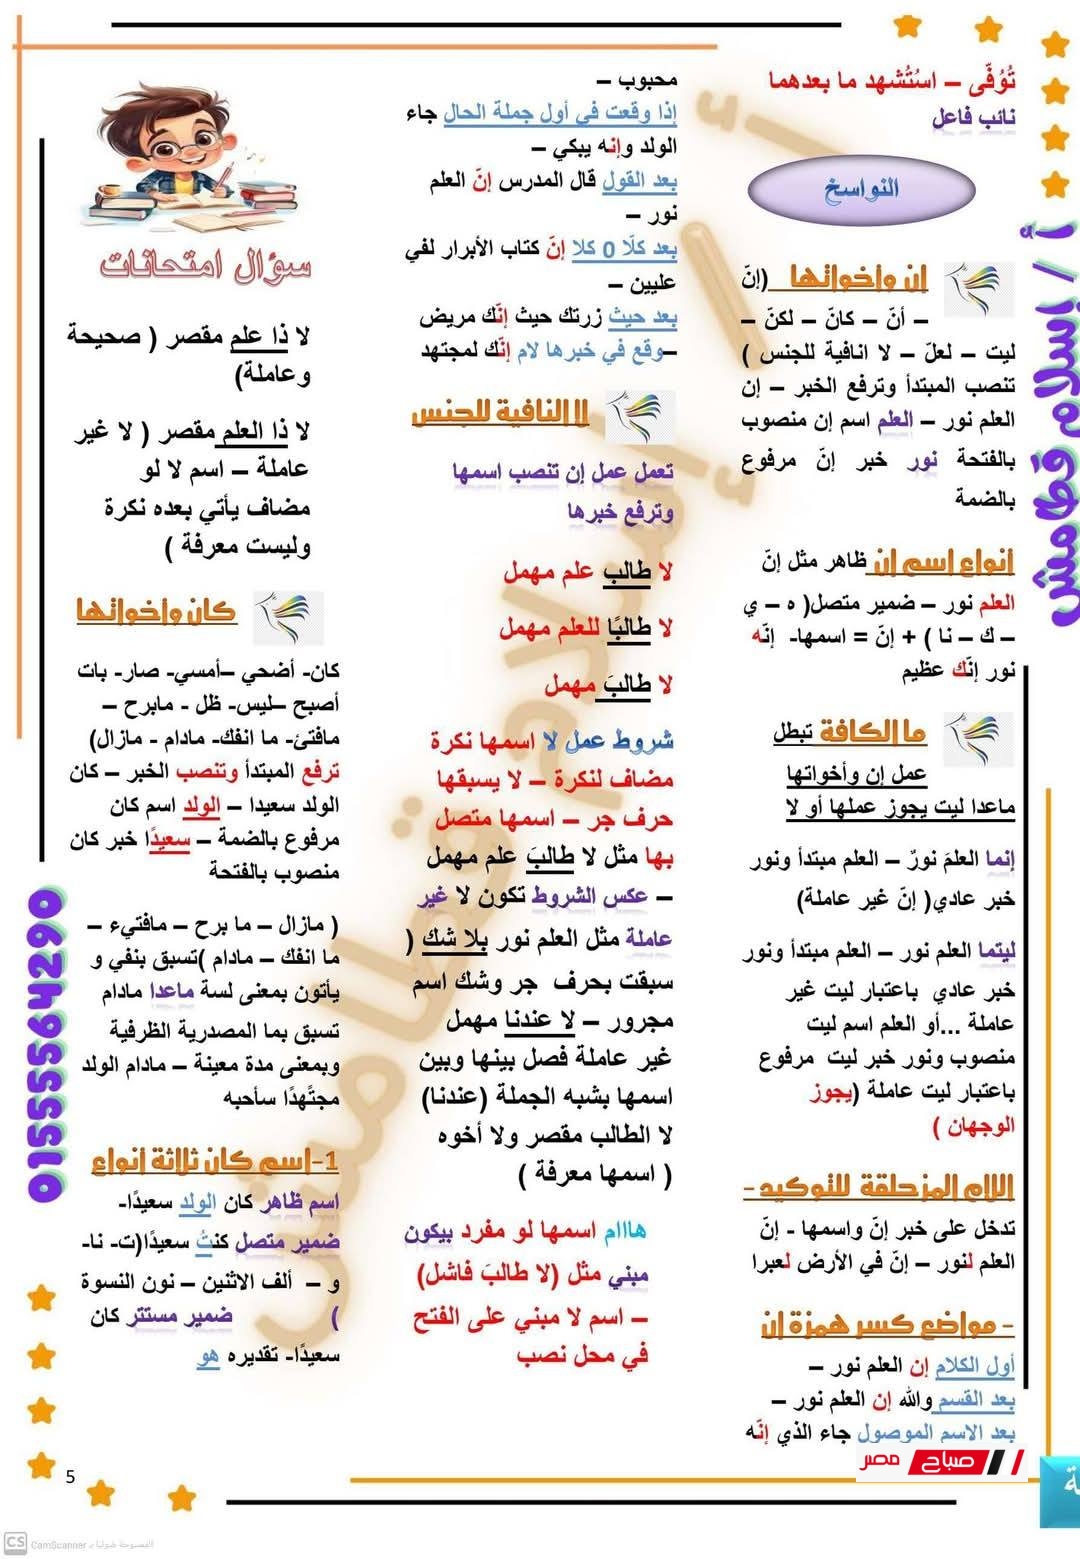 تُوُفّى – اسُتُشهد ما بعدهما
نائب فاعل
النواسخ
إن وأخواتها (إنّ
– أنّ – كانّ – لكنّ –
ليت – لعلّ – لا انافية للجنس )
تنصب المبتدأ وترفع الخبر – إن
العلم نور – العلم اسم إن منصوب
بالفتحة نور خبر إنّ مرفوع
بالضمة
أنواع اسم إن ظاهر مثل إنّ
العلم نور – ضمير متصل( ه – ي
– ك – نا ) + إنّ = اسمها- إنّه
نور إنّك عظيم
ما الكافة تبطل
عمل إن وأخواتها
ماعدا ليت يجوز عملها أو لا
إنما العلمَ نورٌ – العلم مبتدأ ونور
خبر عادي( إنّ غير عاملة)
ليتما العلم نور – العلم مبتدأ ونور
خبر عادي باعتبار ليت غير
عاملة ...أو العلم اسم ليت
منصوب ونور خبر ليت مرفوع
باعتبار ليت عاملة (يجوز
الوجهان )
اللام المزحلقة للتوكيد -
تدخل على خبر إنّ واسمها - إنّ
العلم لنور – إنّ في الأرض لعبرا
- مواضع كسر همزة إن
أول الكلام إن العلم نور –
بعد القسم والله إن العلم نور –
بعد الاسم الموصول جاء الذي إنّه
محبوب –
إذا وقعت في أول جملة الحال جاء
الولد وإنه يبكي –
بعد القول قال المدرس إنّ العلم
نور –
بعد كلّا 0 كلا إنّ كتاب الأبرار لفي
عليين –
بعد حيث زرتك حيث إنّك مريض
–وقع في خبرها لام إنّك لمجتهد
لا النافية للجنس
تعمل عمل إن تنصب اسمها
وترفع خبرها
لا طالب علم مهمل
لا طالبًا للعلم مهمل
لا طالبَ مهمل
شروط عمل لا اسمها نكرة
مضاف لنكرة – لا يسبقها
حرف جر – اسمها متصل
بها مثل لا طالبَ علم مهمل
– عكس الشروط تكون لا غير
عاملة مثل العلم نور بلا شك (
سبقت بحرف جر وشك اسم
مجرور – لا عندنا مهمل
غير عاملة فصل بينها وبين
اسمها بشبه الجملة (عندنا)
لا الطالب مقصر ولا أخوه
( اسمها معرفة )
هااام اسمها لو مفرد بيكون
مبني مثل (لا طالبَ فاشل)
– اسم لا مبني على الفتح
في محل نصب
سؤال امتحانات
لا ذا علم مقصر ( صحيحة
وعاملة)
لا ذا العلم مقصر ( لا غير
عاملة – اسم لا لو
مضاف يأتي بعده نكرة
وليست معرفة )
كان وأخواتها
كان- أضحي –أمسي- صار- بات
أصبح –ليس- ظل - مابرح –
مافتئ- ما انفك- مادام - مازال)
ترفع المبتدأ وتنصب الخبر – كان
الولد سعيدا – الولد اسم كان
مرفوع بالضمة – سعيدًا خبر كان
منصوب بالفتحة
( مازال – ما برح – مافتيء –
ما انفك – مادام )تسبق بنفي و
يأتون بمعنى لسة ماعدا مادام
تسبق بما المصدرية الظرفية
وبمعنى مدة معينة – مادام الولد
مجتهدًا سأحبه
1-اسم كان ثلاثة أنواع
اسم ظاهر كان الولد سعيدًا-
ضمير متصل كنتُ سعيدًا(ت- نا-
و – ألف الاثنين – نون النسوة
) ضمير مستتر كان
سعيدًا- تقديره هو
أ / إسلام قطامش
01555564290
أ / إسلام قطامش
صباح مصر
5
CS CamScanner الممسوحة ضوئيا بـ